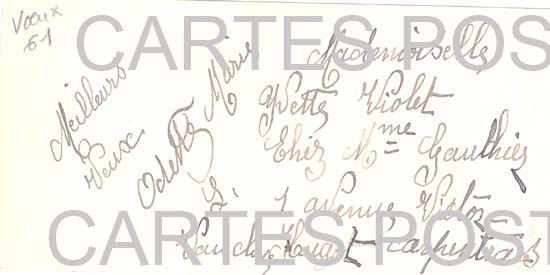 Voeux
61
CARTES POST
Meilleurs
Veux
Odette Marie
Mademoiselle
Yvette Violet
Chez Mme Gauthier
1 avenue Victor
Hugo Carpentras
Vaucluse
CARTES POST